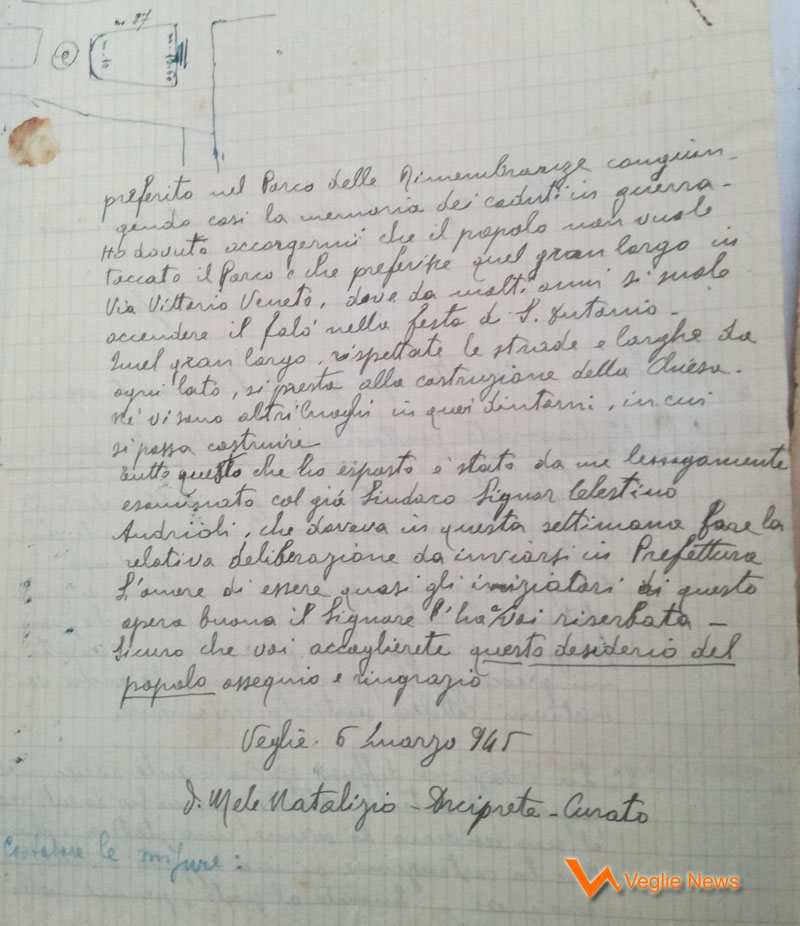 m. 27
e
m. 10
m. 10.60
preferito nel Parco delle Rimembranze congiun-
gendo così la memoria dei caduti in guerra -
Ho dovuto accorgermi che il popolo non vuole
toccato il Parco e che preferisce quel gran largo in
Via Vittorio Veneto, dove da molti anni si suole
accendere il falò nella festa di S. Antonio -
Quel gran largo, rispettate le strade e larghe da
ogni lato, si presta alla costruzione della Chiesa -
Né vi sono altri luoghi in quei dintorni, in cui
si possa costruire
Tutto questo che ho esposto è stato da me
esaminato col già Sindaco Signor Celestino
Andrioli, che doveva in questa settimana fare la
relativa deliberazione da inviarsi in Prefettura
L'onore di essere quasi gli iniziatori di questa
opera buona il Signore l'ha a Voi riserbata -
Sicuro che voi accoglierete questo desiderio del
popolo ossequio e ringrazio
Veglie. 6 Marzo 945
D. Mele Natalizio - Arciprete - Curato
le misure:
Veglie News